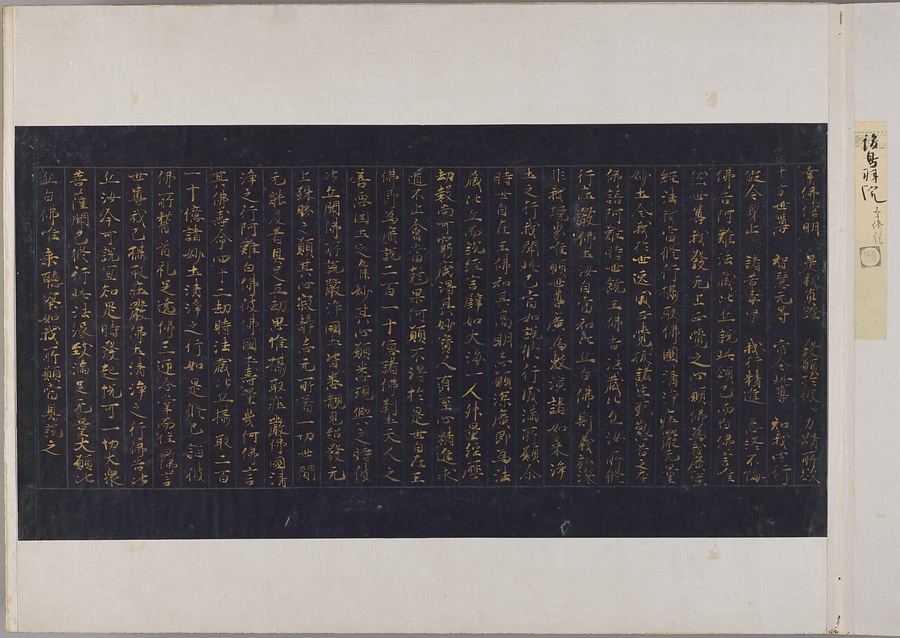 幸佛信明 是我真證 發願於彼 力精所欲
十方世尊 智慧无碍 常令此尊 知我心行
假令身止 諸苦毒中 我行精進 忍終不悔
佛告阿難法藏比丘說此頌已而白佛言唯
然世尊我發无上正覺之心願佛為我廣宣
經法我當修行攝取佛國清淨莊嚴无量
妙土令我於世速成正覺拔諸生死勤苦之本
佛語阿難時世饒王佛告法藏比丘汝所修
行莊嚴佛土汝自當知比丘白佛斯義弘深
非我境界唯願世尊廣為敷演諸如來淨
土之行我聞此已當如說修行成滿所願尒
時世自在王佛知其高明志願深廣即為法
藏比丘而說經言譬如大海一人升量經歷
劫數尚可窮底得其妙寶人有至心精進求
道不止會當剋果何願不得於是世自在王
佛即為廣說二百一十億諸佛刹土天人之
善惡國土之麁妙其心願悉現與之時彼
比丘聞佛所說嚴淨國土皆悉覩見超發无
上殊勝之願其心寂靜志无所著一切世間
无能及者具足五劫思惟攝取莊嚴佛國清
淨之行阿難白佛彼佛國土壽量幾何佛言
其佛壽命四十二劫時法藏比丘攝取二百
一十億諸妙土清淨之行如是修已詣彼
佛所稽首礼足遶佛三迊合掌而住白言
世尊我已攝取莊嚴佛土清淨之行佛告比
丘汝今可說宜知是時發起悅可一切大衆
菩薩聞已修行此法緣致滿足无量大願比
丘白佛唯垂聽察如我所願當具說之
後鳥羽院